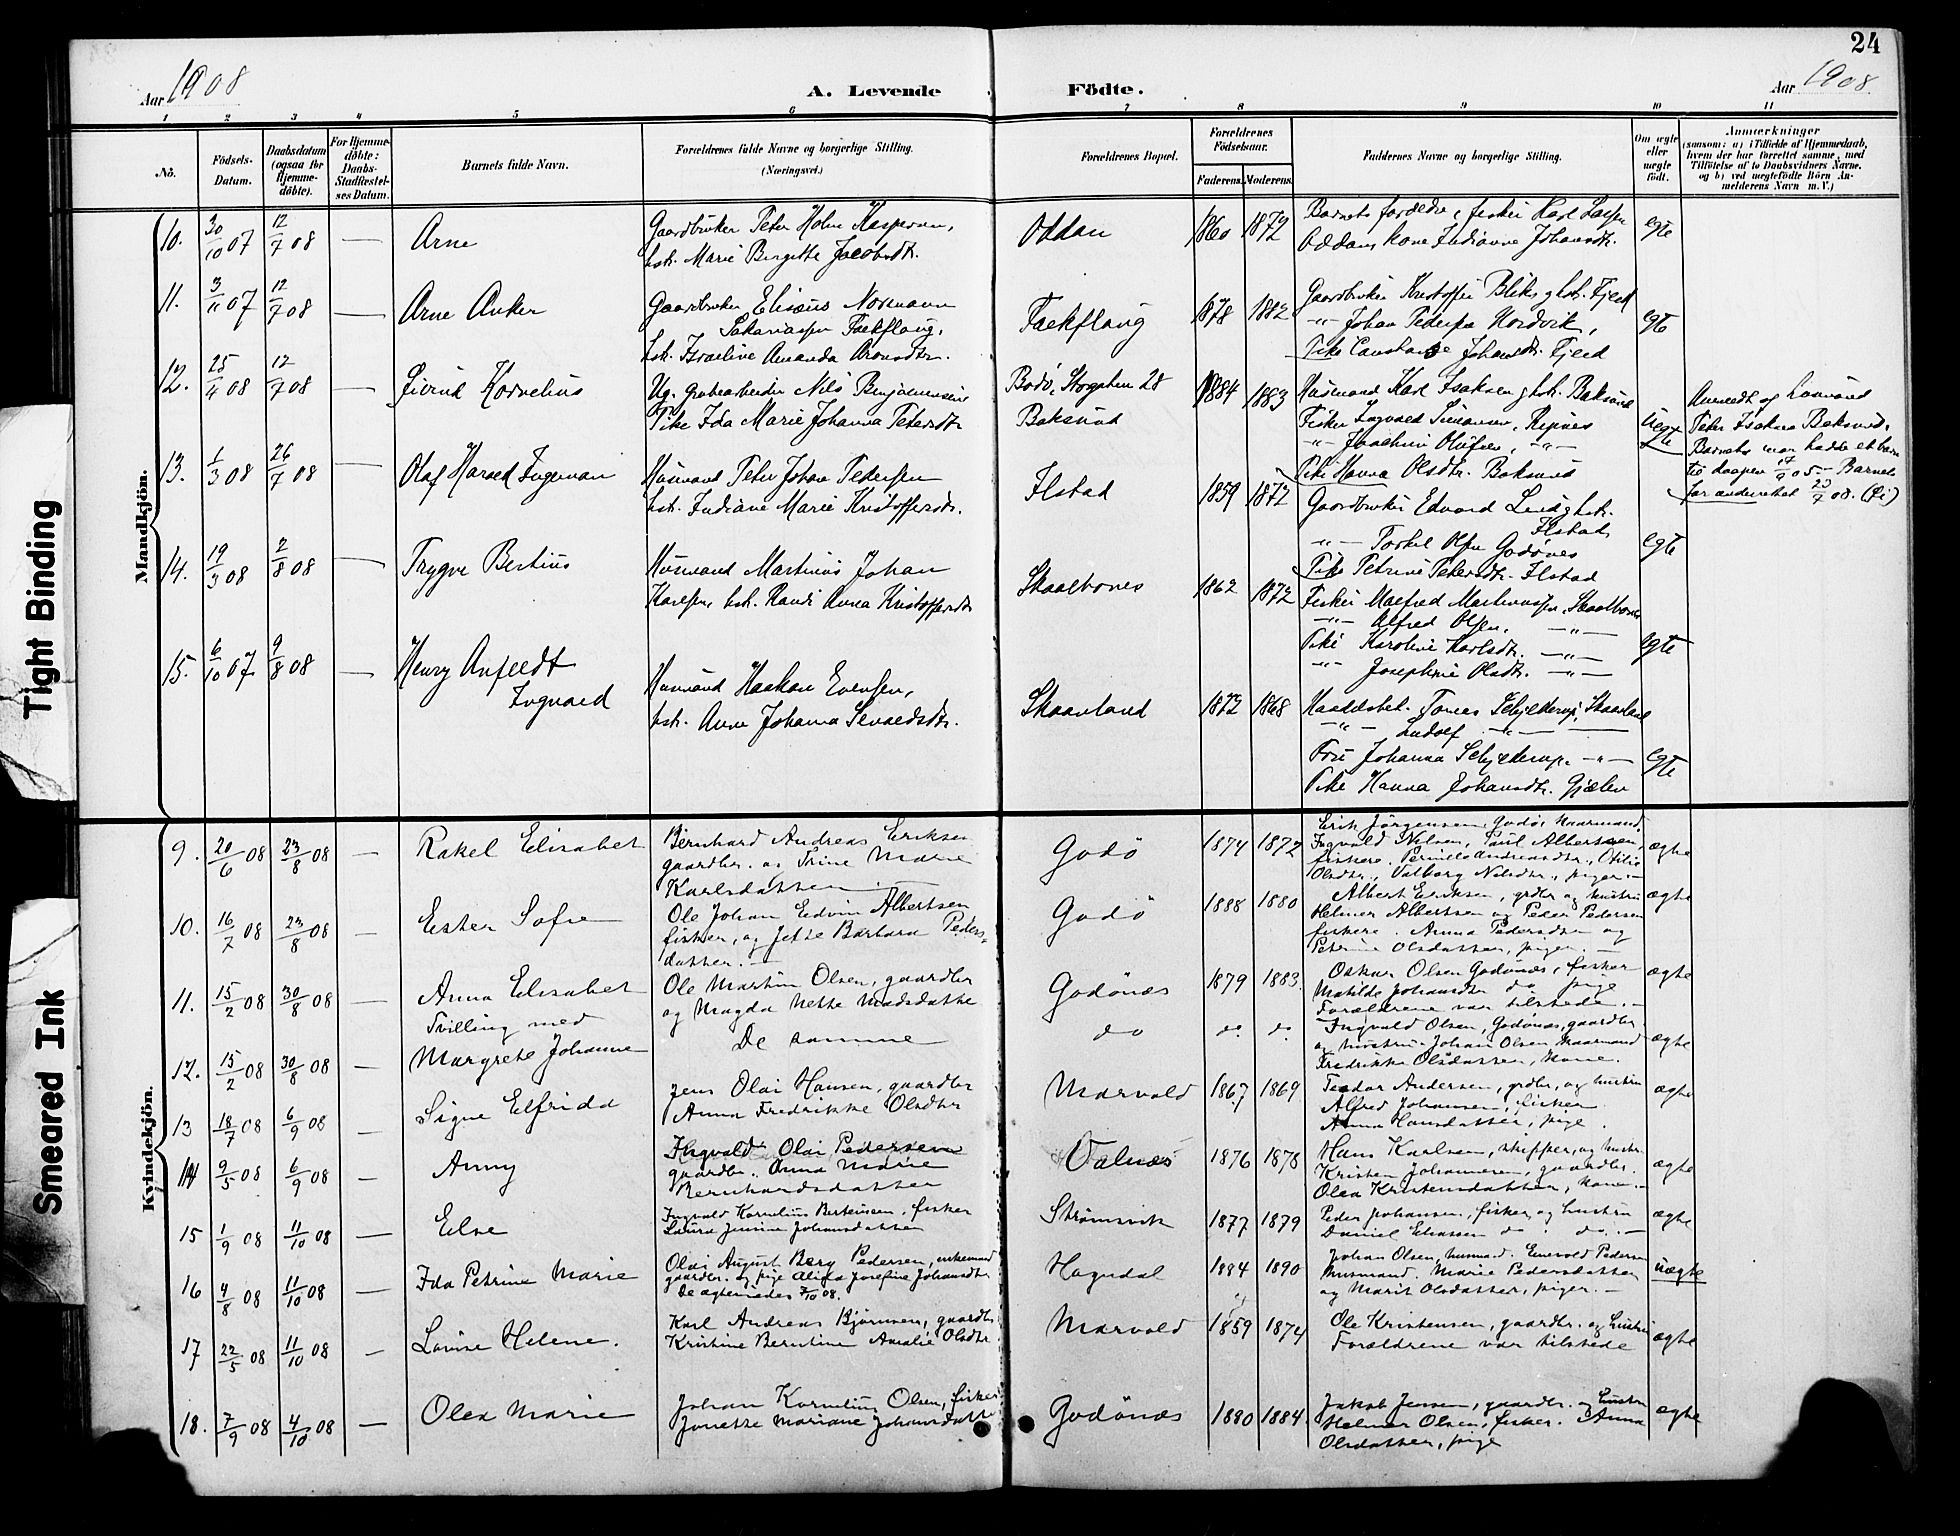 24
Aar 1908
A. Levende
Födte.
Aar 1908
1 2 3 4 5 6 7 8 9 10 11
No.
Födsels-Datum.
Daabsdatum (ogsaa for Hjemme-döbte).
For Hjemme-döbte: Daabs-Stadfæstel-ses Datum.
Barnets fulde Navn.
Forældrenes fulde Navne og borgerlige Stilling.
(Næringsvei.)
Forældrenes Bopæl.
Forældrenes Födselsaar.
Faderens. Moderens.
Faddernes Navne og borgerlige Stilling.
Om ægte eller uægte födt.
Anmærkninger
(saasom: a) i Tilfælde af Hjemmedaab,
hvem der har forrettet samme, med
Tilföielse af to Daabsvidners Navne,
og b) ved uægtefödte Börn An-
melderens Navn m. V.)
Mandkjön.
10. 30/10 07 12/7 08 — Arne
Gaardbruker Peter Holm Kaspersen,
hst. Marie Birgitte Jacobsdtr.
Oddan 1860 1872
Barnets forældre, fisker Karl
Oddan, kone Indianne Johansdtr.
egte
11. 3/11 07 12/7 08 — Arne Anker
Gaardbruker Elisæus Normann
Sakariassen
hst. Israeline Amanda
1878 1882
Gaardbruker Kristoffer Bliks g hst. Fjeld
-"- Johan Pedersen Nordvik,
Pike Johansdtr. Fjeld
egte
12. 25/4 08 12/7 08 — Eivind Kornelius
Ug. Grubearbeider Nils Benjaminsen
Pike Ida Marie Johanna Petersdtr
Bodö, Storgaten 28
Baksund
1884 1883
Husmand Karl Isaksen g hst. Baksund
Fisker Ingvald Simonsen, Ripnes
-"- Joachim Olufsen, -"-
Pike Hanna Olsdtr. Baksund
Uegte
Peter Isaksen Baksund.
Barnets mor hadde et barn
til daapen 17/9 05 - Barnets
far anderettet 20/7 08.
13. 1/3 08 26/7 08 — Olaf Harald Ingeman
Husmand Peter Johan Pedersen
hst. Indiane Marie Kristoffersdtr.
Ilstad 1859 1872
Gaardbruker Edvard Lund g hst.
Ilstad,
-"- Torkel Olsen Godönes
Pike Petrine Petersdtr. Ilstad
egte
14. 19/3 08 2/8 08 — Trygve Bertius
Husmand Martinus Johan
Karlsen, hst. Randi Anna Kristoffersdtr
Skaalbones 1862 1872
Fisker Malfred Martinussen, Skaalbones
-"- Alfred Olsen, -"-
Pike Karoline Karlsdtr. -"-
-"- Josephine Olsdtr. -"-
egte
15. 6/10 07 9/8 08 — Henry Anfeldt
Ingvald
Husmand Haakon Evensen,
hst. Anne Johanna Sivaldsdtr.
Skaanland 1872 1868
Handelsbet. Tomas Schjelderup, Skaanland
-"- Ludolf -"-
Fru Johanna Schjelderup -"-
Pike Hanna Johansdtr. Gjælen
egte
Kvindekjön.
9. 20/6 08 23/8 08 — Rakel Elisabet
Bernhard Andreas Eriksen
gaardbr. og Trine Marie
Karlsdatter
Godö 1874 1872
Erik Jörgensen Godö, Kaarmand,
Ingvald Nilsen, Paul Albertsen,
fiskere. Pernille Andreasdtr., Otilie
Olsdtr., Valborg Nilsdtr., piger.
ægte
10. 16/7 08 23/8 08 — Ester Sofie
Ole Johan Edvin Albertsen
fisker, og Jette Barbara Peders-
datter.
Godö 1888 1880
Albert Eriksen, grdbr og hustru
Helmer Albertsen og Peder Pedersen
fiskere. Anna Pedersdtr og
Petrine Olsdatter, piger.
ægte
11. 15/2 08 30/8 08 — Anna Elisabet
Tvilling med
Ole Martin Olsen, gaardbr
og Magda Nette Madsdatter
Godönæs 1879 1883.
Oskar Olsen Godönæs, fisker
Matilde Johansdtr do pige
Forældrene var tilstede.
ægte
12. 15/2 08 30/8 08 — Margrete Johanne
De samme
do do. do
Ingvald Olsen, Godönæs, gaardbr.
og hustru. Johan Olsen Kaarmand
Fredrikke Olsdatter, Kone.
ægte
13 18/7 08 6/9 08 — Signe Elfrida
Jens Olai Hansen, gaardbr
Anna Fredrikke Olsdtr
Marvold 1867 1869
Teodor Andersen, grdbr, og hustru
Alfred Johansen, fisker
Anna Hansdatter, pige.
ægte
14 9/5 08 6/9 08 — Anny
Ingvald Olai Pedersen
gaardbr. Anna Marie
Bernhardsdatter
Valnæs 1876 1878
Hans Karlsen, skipper, og hustr.
Kristen Johannesen, gaardbr.
Olea Kristensdatter, kone.
ægte
15 1/9 08 11/10 08 — Else
Ingvald Kornelius Bertinsen, fisker
Laura Jensine Johansdatter
Strömsvik 1877 1879
Peder Johansen, fisker, og hustru
Daniel Eliassen do. do.
ægte
16 4/8 08 11/10 08 — Ida Petrine Marie
Olai August Berg Pedersen, enkemand
gaardbr. og pige Alida Josefine Johansdtr
De ægteviedes 3/10 08.
Hogndal 1884 1890
Johan Olsen, husmand. Enevold Pedersen
Husmand. Marie Pedersdatter
og Marit Olsdatter, piger.
uægte
17 22/5 08 11/10 08 — Lovise Helene.
Karl Andreas Bjørnsen, gaardbr.
Kristine Berntine Amalie Olsdtr.
Marvold 1859 1874
Ole Kristensen, gaardbr. og hustru
Forældrene var tilstede
ægte
18. 7/9 08 4/10 08 — Olea Marie
Johan Kornelius Olsen, fisker
Jonette Mariane Johansdatter
Godönæs 1880 1884.
Jakob Jensen, gaardbr. og hustru
Helmer Olsen, fisker. Anna
Olsdatter, pige
ægte
Tight Binding
Smeared Ink